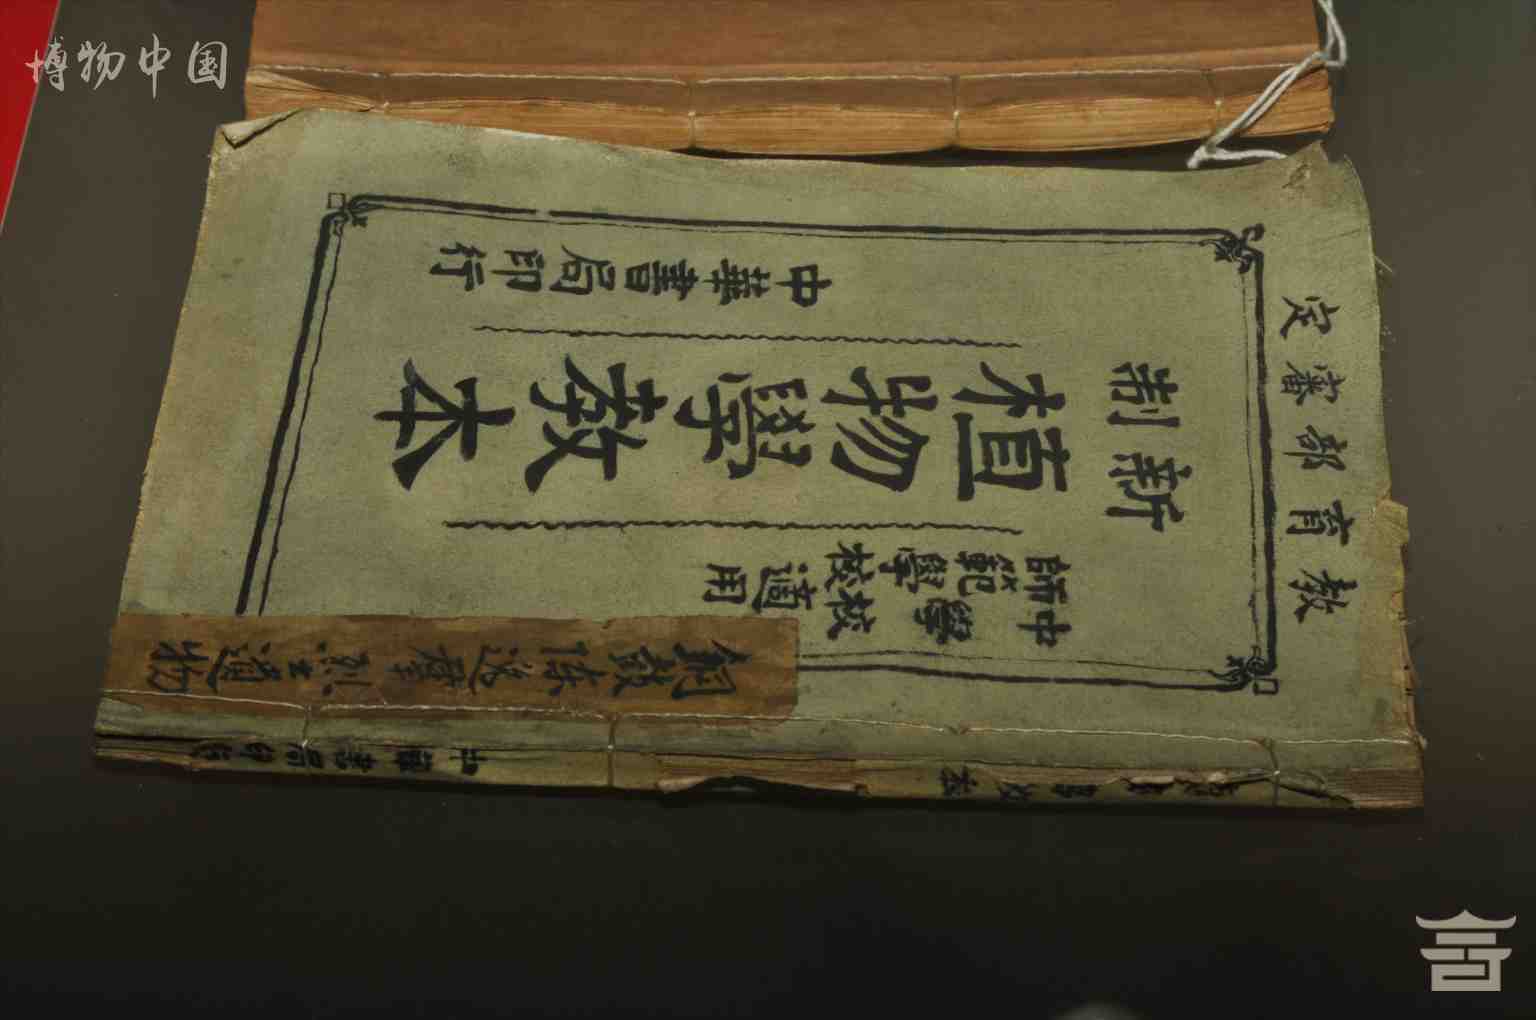 博物中国
教育部審定
新制
中學校
師範學校
適用
植物學教本
中華書局印行
銅鼓陳逸羣烈士遺物
中華書局印行